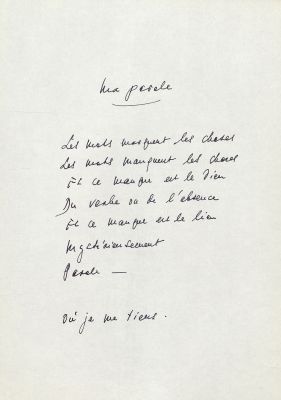 Ma parole
Les mots masquent les choses
Les mots manquent les choses
Et ce manque est le lien
Du verbe ou de l'absence
Et ce manque est le lien
Mystérieusement
Parole —
Où je me tiens.